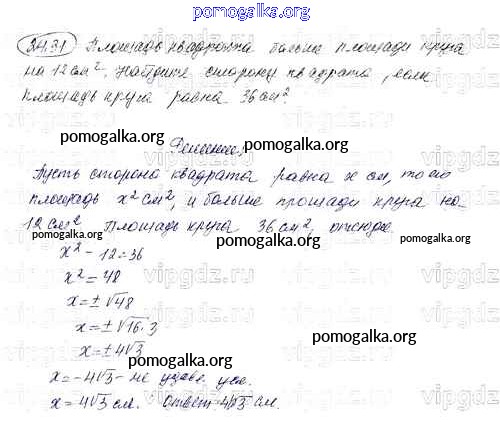 pomogalka.org
24.31 Площадь квадрата больше площади круга
на 12 см². Найдите сторону квадрата, если
площадь круга равна 36 см².
pomogalka.org
pomogalka.org
Решение,
Пусть сторона квадрата равна x см, то его
площадь x² см², и больше площади круга на
12 см². Площадь круга 36 см², отсюда.
pomogalka.org
pomogalka.org
pomogalka.org
x² - 12 = 36
x² = 48
x = ± √48
x = ± √16·3
x = ± 4√3
pomogalka.org
pomogalka.org
x = -4√3 - не удовл. усл.
x = 4√3 см. Ответ 4√3 см.
pomogalka.org
vipgdz